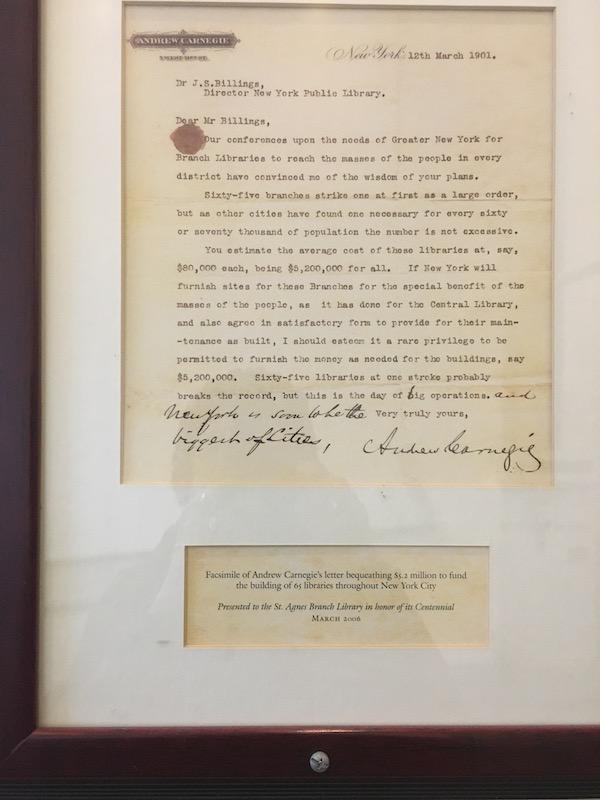 ANDREW CARNEGIE
New York 12th March 1901.
Dr J.S.Billings,
Director New York Public Library.
Dear Mr Billings,
Our conferences upon the needs of Greater New York for
Branch Libraries to reach the masses of the people in every
district have convinced me of the wisdom of your plans.
Sixty-five branches strike one at first as a large order,
but as other cities have found one necessary for every sixty
or seventy thousand of population the number is not excessive.
You estimate the average cost of these libraries at, say,
$80,000 each, being $5,200,000 for all. If New York will
furnish sites for these Branches for the special benefit of the
masses of the people, as it has done for the Central Library,
and also agree in satisfactory form to provide for their main-
-tenance as built, I should esteem it a rare privilege to be
permitted to furnish the money as needed for the buildings, say
$5,200,000. Sixty-five libraries at one stroke probably
breaks the record, but this is the day of big operations. and
New York is soon to be the Very truly yours,
biggest of Cities, Andrew Carnegie
Facsimile of Andrew Carnegie's letter bequeathing $5.2 million to fund
the building of 65 libraries throughout New York City
Presented to the St. Agnes Branch Library in honor of its Centennial
March 2006